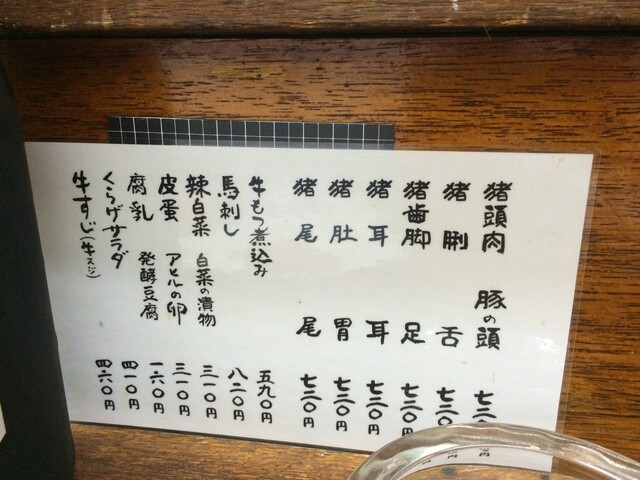 猪頭肉 豚の頭 七二〇
猪脷 舌 七二〇
猪歯脚 足 七二〇円
猪耳 耳 七二〇円
猪肚 胃 七二〇円
猪尾 尾 七二〇円
牛もつ煮込み 五九〇円
馬刺し 八二〇円
辣白菜 白菜の漬物 三一〇円
皮蛋 アヒルの卵 三一〇円
腐乳 発酵豆腐 一六〇円
くらげサラダ 四一〇円
牛すじ(牛スジ) 四六〇円